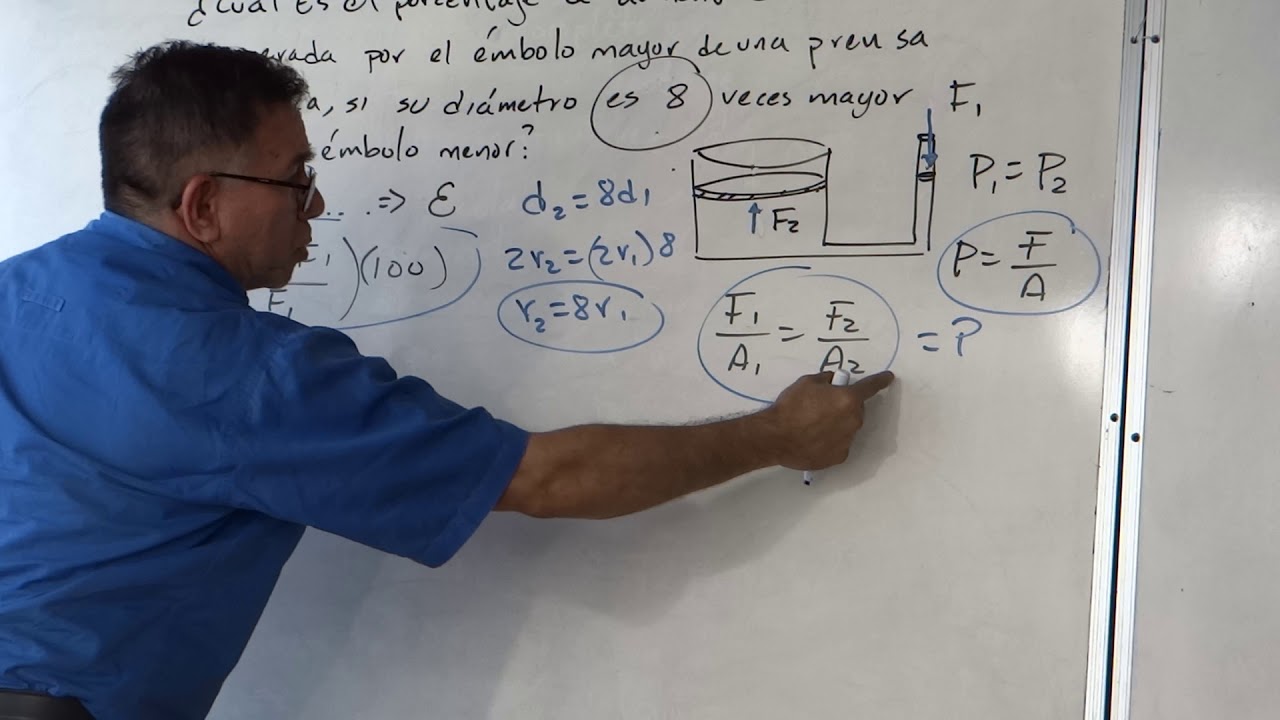 ¿cuál Es el porcentaje
por el émbolo mayor de una prensa
si su diámetro es 8 veces mayor F₁
émbolo menor?
P₁ = P₂
... => ε d₂ = 8d₁
F₂
2r₂ = (2r₁)8
P = F/A
F₁ )(100)
r₂ = 8r₁
F₁/A₁ = F₂/A₂ = P